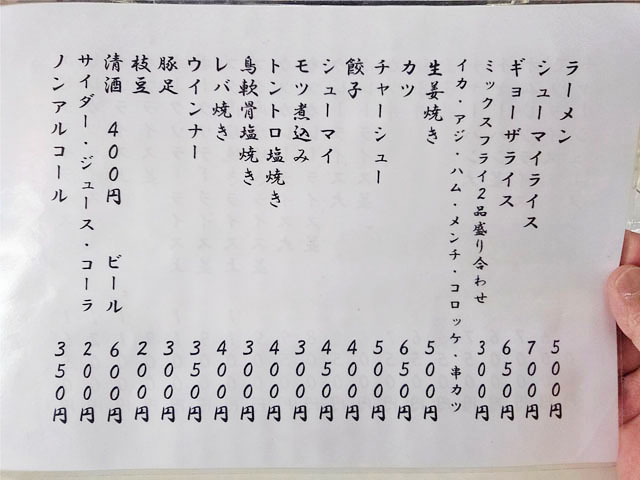 ラーメン 500円
シューマイライス 700円
ギョーザライス 650円
ミックスフライ2品盛り合わせ 300円
イカ・アジ・ハム・メンチ・コロッケ・串カツ
生姜焼き 500円
カツ 650円
チャーシュー 500円
餃子 400円
シューマイ 450円
モツ煮込み 300円
トントロ塩焼き 400円
鳥軟骨塩焼き 300円
レバ焼き 400円
ウインナー 350円
豚足 300円
枝豆 200円
清酒 400円 ビール 600円
サイダー・ジュース・コーラ 200円
ノンアルコール 350円